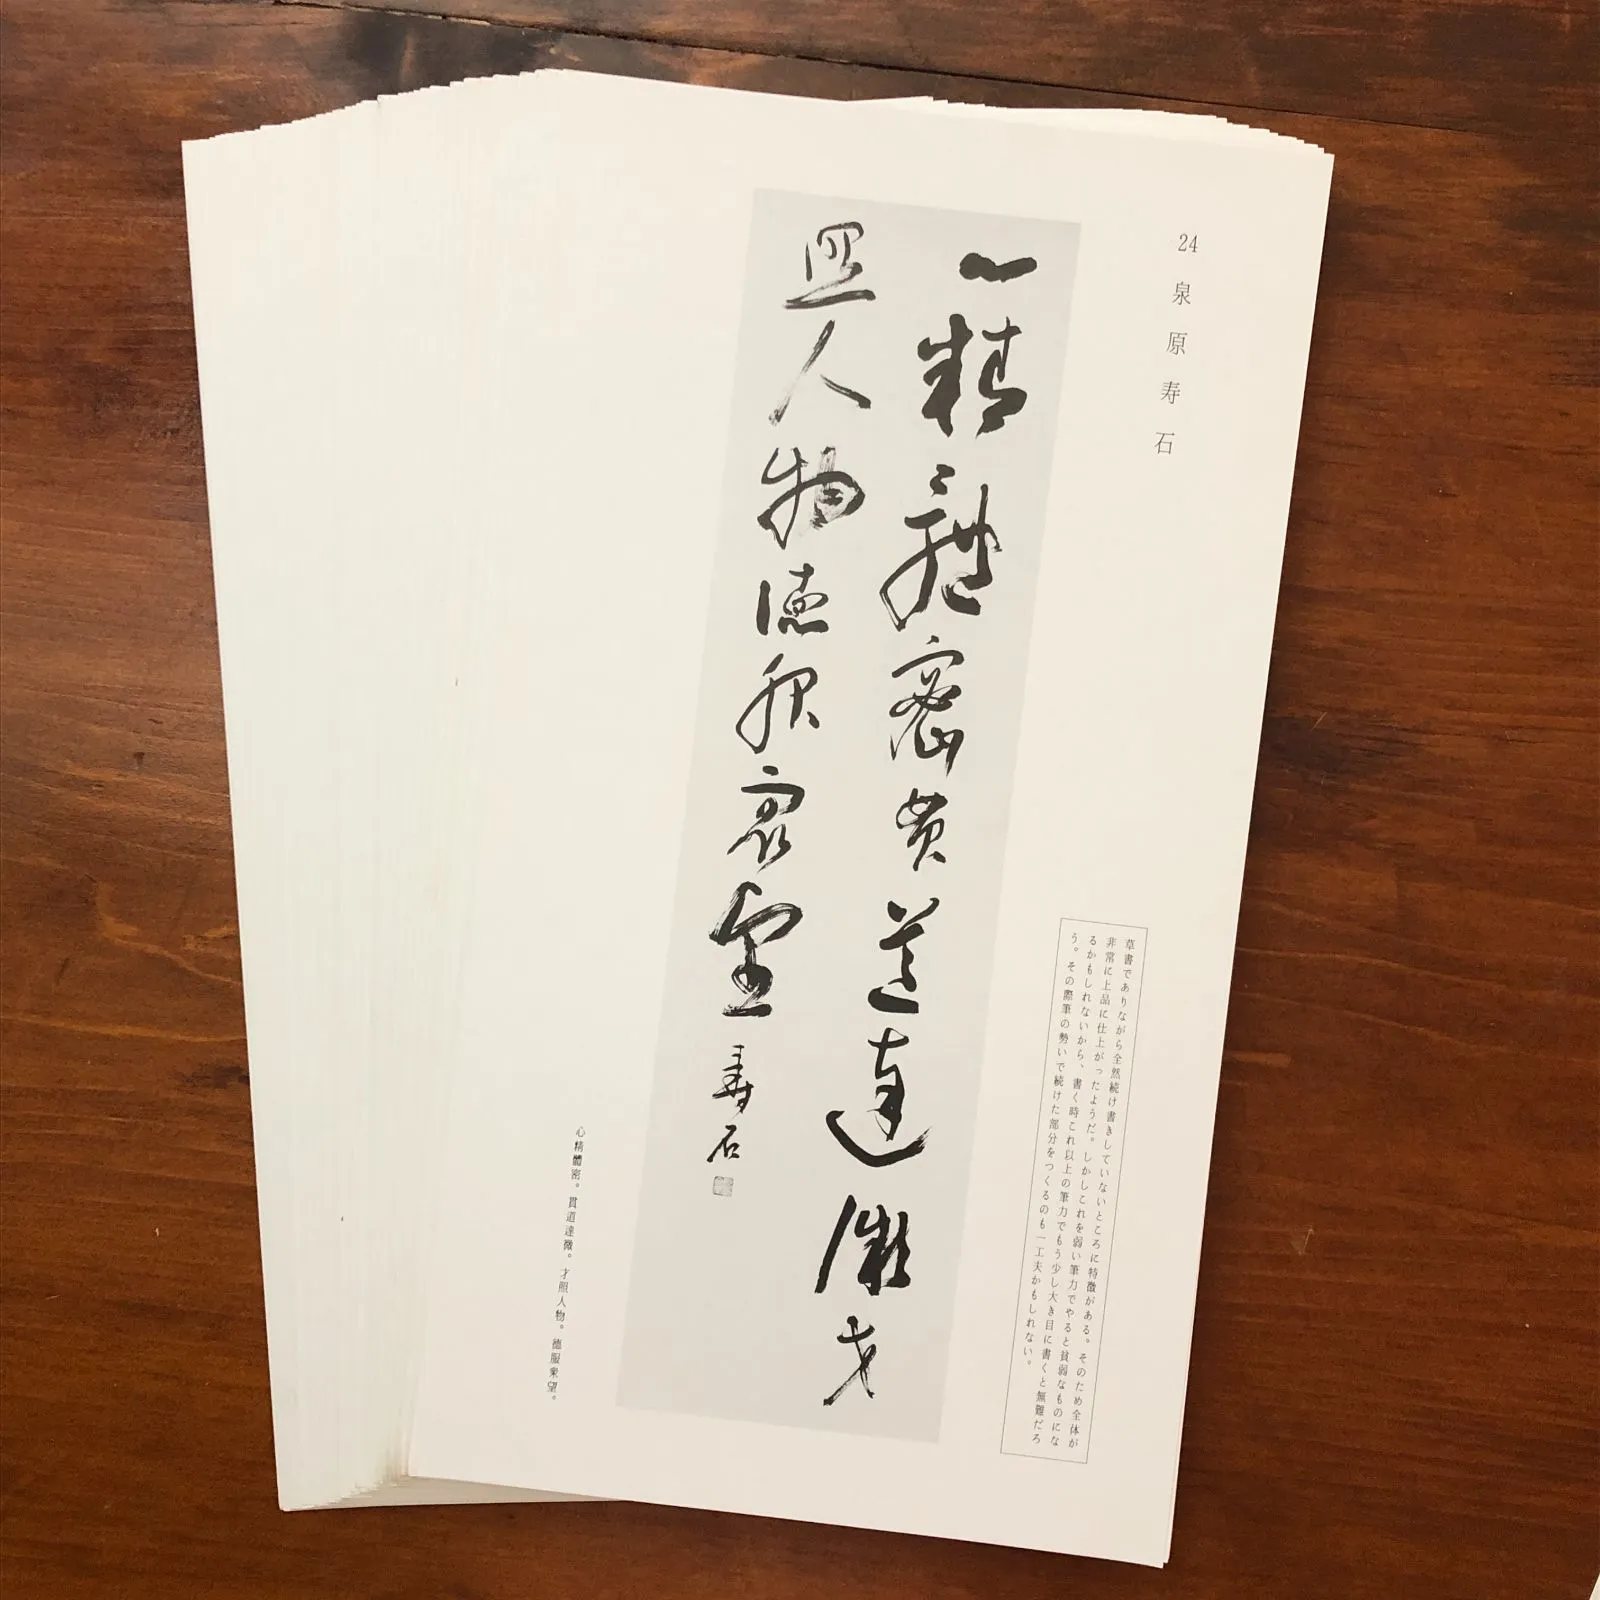 24 泉原寿石
草書でありながら全然続け書きしていないところに特徴がある。そのため全体が
非常に上品に仕上がったようだ。しかしこれを弱い筆力でやると貧弱なものにな
るかもしれないから、書く時これ以上の筆力でもう少し大き目に書くと無難だろ
う。その際筆の勢いで続けた部分をつくるのも一工夫かもしれない。
心精體密貫道達微才
照人物徳服衆望 寿石
心精體密。貫道達微。才照人物。德服衆望。